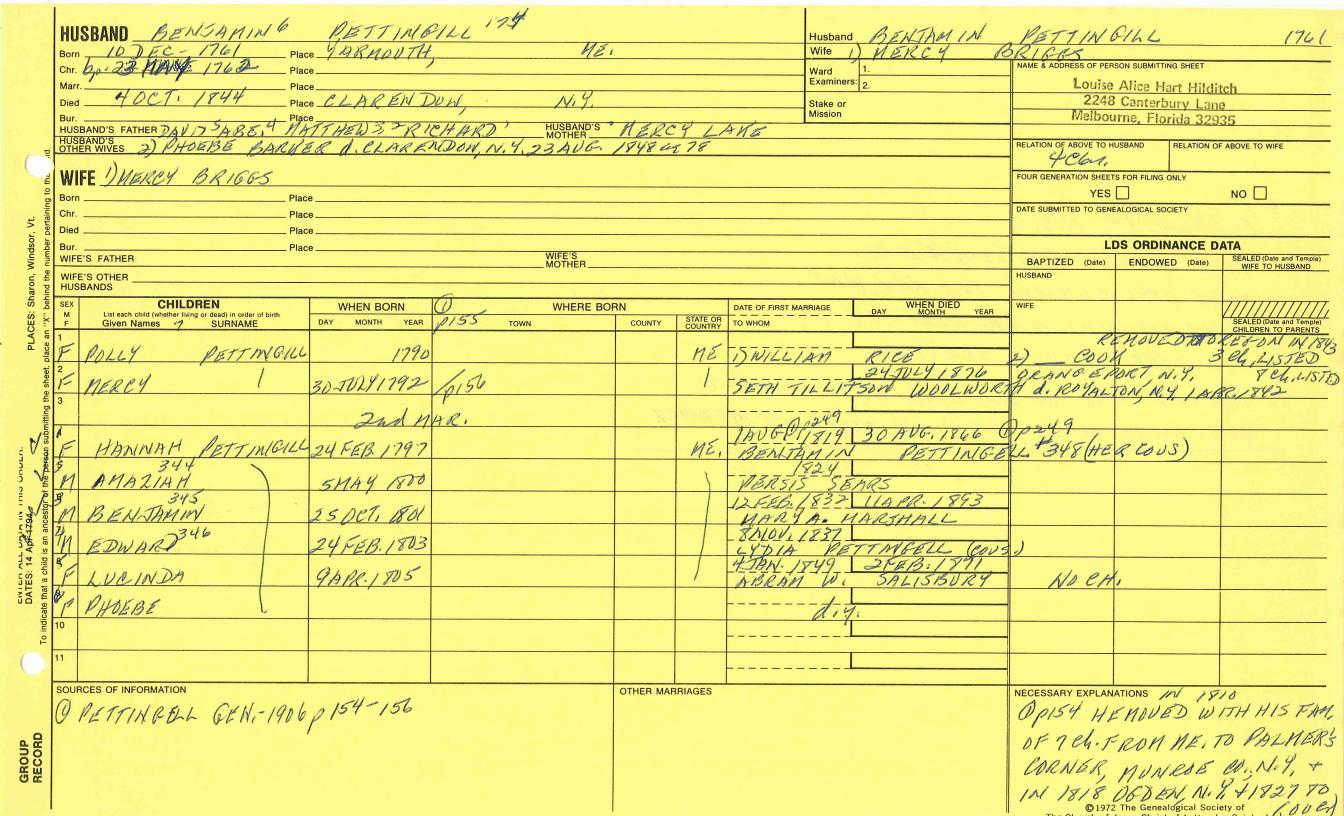 HUSBAND BENJAMIN 6 PETTINGILL 174
Born 10 DEC- 1761 Place YARMOUTH, ME.
Chr. bp. 23 1762 Place
Marr. Place
Died 4 OCT. 1844 Place CLARENDON, N.Y.
Bur. Place
HUSBAND'S FATHER DAVID 5 ABE. 4 MATTHEW 3, 2 RICHARD 1 HUSBAND'S MOTHER MERCY LAKE
HUSBAND'S OTHER WIVES 2) PHOEBE BARKER d. CLARENDON, N.Y. 23 AUG. 1848 ae 78
Husband BENJAMIN PETTINGILL 1761
Wife 1) MERCY BRIGGS
Ward Examiners: 1.
2.
Stake or Mission
NAME & ADDRESS OF PERSON SUBMITTING SHEET
Louise Alice Hart Hilditch
2248 Canterbury Lane
Melbourne, Florida 32935
RELATION OF ABOVE TO HUSBAND RELATION OF ABOVE TO WIFE
FOUR GENERATION SHEETS FOR FILING ONLY
YES NO
DATE SUBMITTED TO GENEALOGICAL SOCIETY
WIFE 1) MERCY BRIGGS
Born Place
Chr. Place
Died Place
Bur. Place
WIFE'S FATHER WIFE'S MOTHER
WIFE'S OTHER HUSBANDS
LDS ORDINANCE DATA
BAPTIZED (Date) ENDOWED (Date) SEALED (Date and Temple) WIFE TO HUSBAND
HUSBAND
WIFE
SEALED (Date and Temple) CHILDREN TO PARENTS
SEX M F
CHILDREN
List each child (whether living or dead) in order of birth
Given Names SURNAME
WHEN BORN
DAY MONTH YEAR
WHERE BORN
① p155 TOWN COUNTY STATE OR COUNTRY
DATE OF FIRST MARRIAGE
TO WHOM
WHEN DIED
DAY MONTH YEAR
REMOVED TO OREGON IN 1843
1 F POLLY PETTINGILL 1790 ME 1) WILLIAM RICE 2) ___ COOK 3 Ch. LISTED
24 JULY 1876 ORANGEPORT, N.Y. 8 Ch. LISTED
2 F MERCY 30 JULY 1792 p156 SETH TILLITSON WOOLWORTH d. ROYALTON, N.Y. 1 APR. 1842
3
2nd MAR.
① p249
1 AUG 1819 30 AUG. 1866 ① p249
F HANNAH PETTINGILL 24 FEB 1797 ME. BENJAMIN PETTINGELL #348 (HER COUS)
344 1824
M AMAZIAH 5 MAY 1800 PERSIS SEARS
345 12 FEB. 1832 11 APR. 1893
M BENJAMIN 25 OCT. 1801 MARY A. MARSHALL
346 8 NOV. 1837
M EDWARD 24 FEB. 1803 LYDIA PETTINGELL (COUS.)
4 JAN. 1849 2 FEB. 1891
F LUCINDA 9 APR. 1805 ABRAM W. SALISBURY NO CH.
F PHOEBE d.y.
10
11
SOURCES OF INFORMATION
① PETTINGELL GEN.-1906 p 154-156
OTHER MARRIAGES
NECESSARY EXPLANATIONS IN 1810
① p154 HE MOVED WITH HIS FAM.
OF 7 Ch. FROM ME. TO PALMER'S
CORNER, MUNROE CO., N.Y., +
IN 1818 OGDEN, N.Y. + 1827 TO
(over)
©1972 The Genealogical Society of
PLACES: Sharon, Windsor, Vt.
DATES: 14 Apr 1794
GROUP RECORD